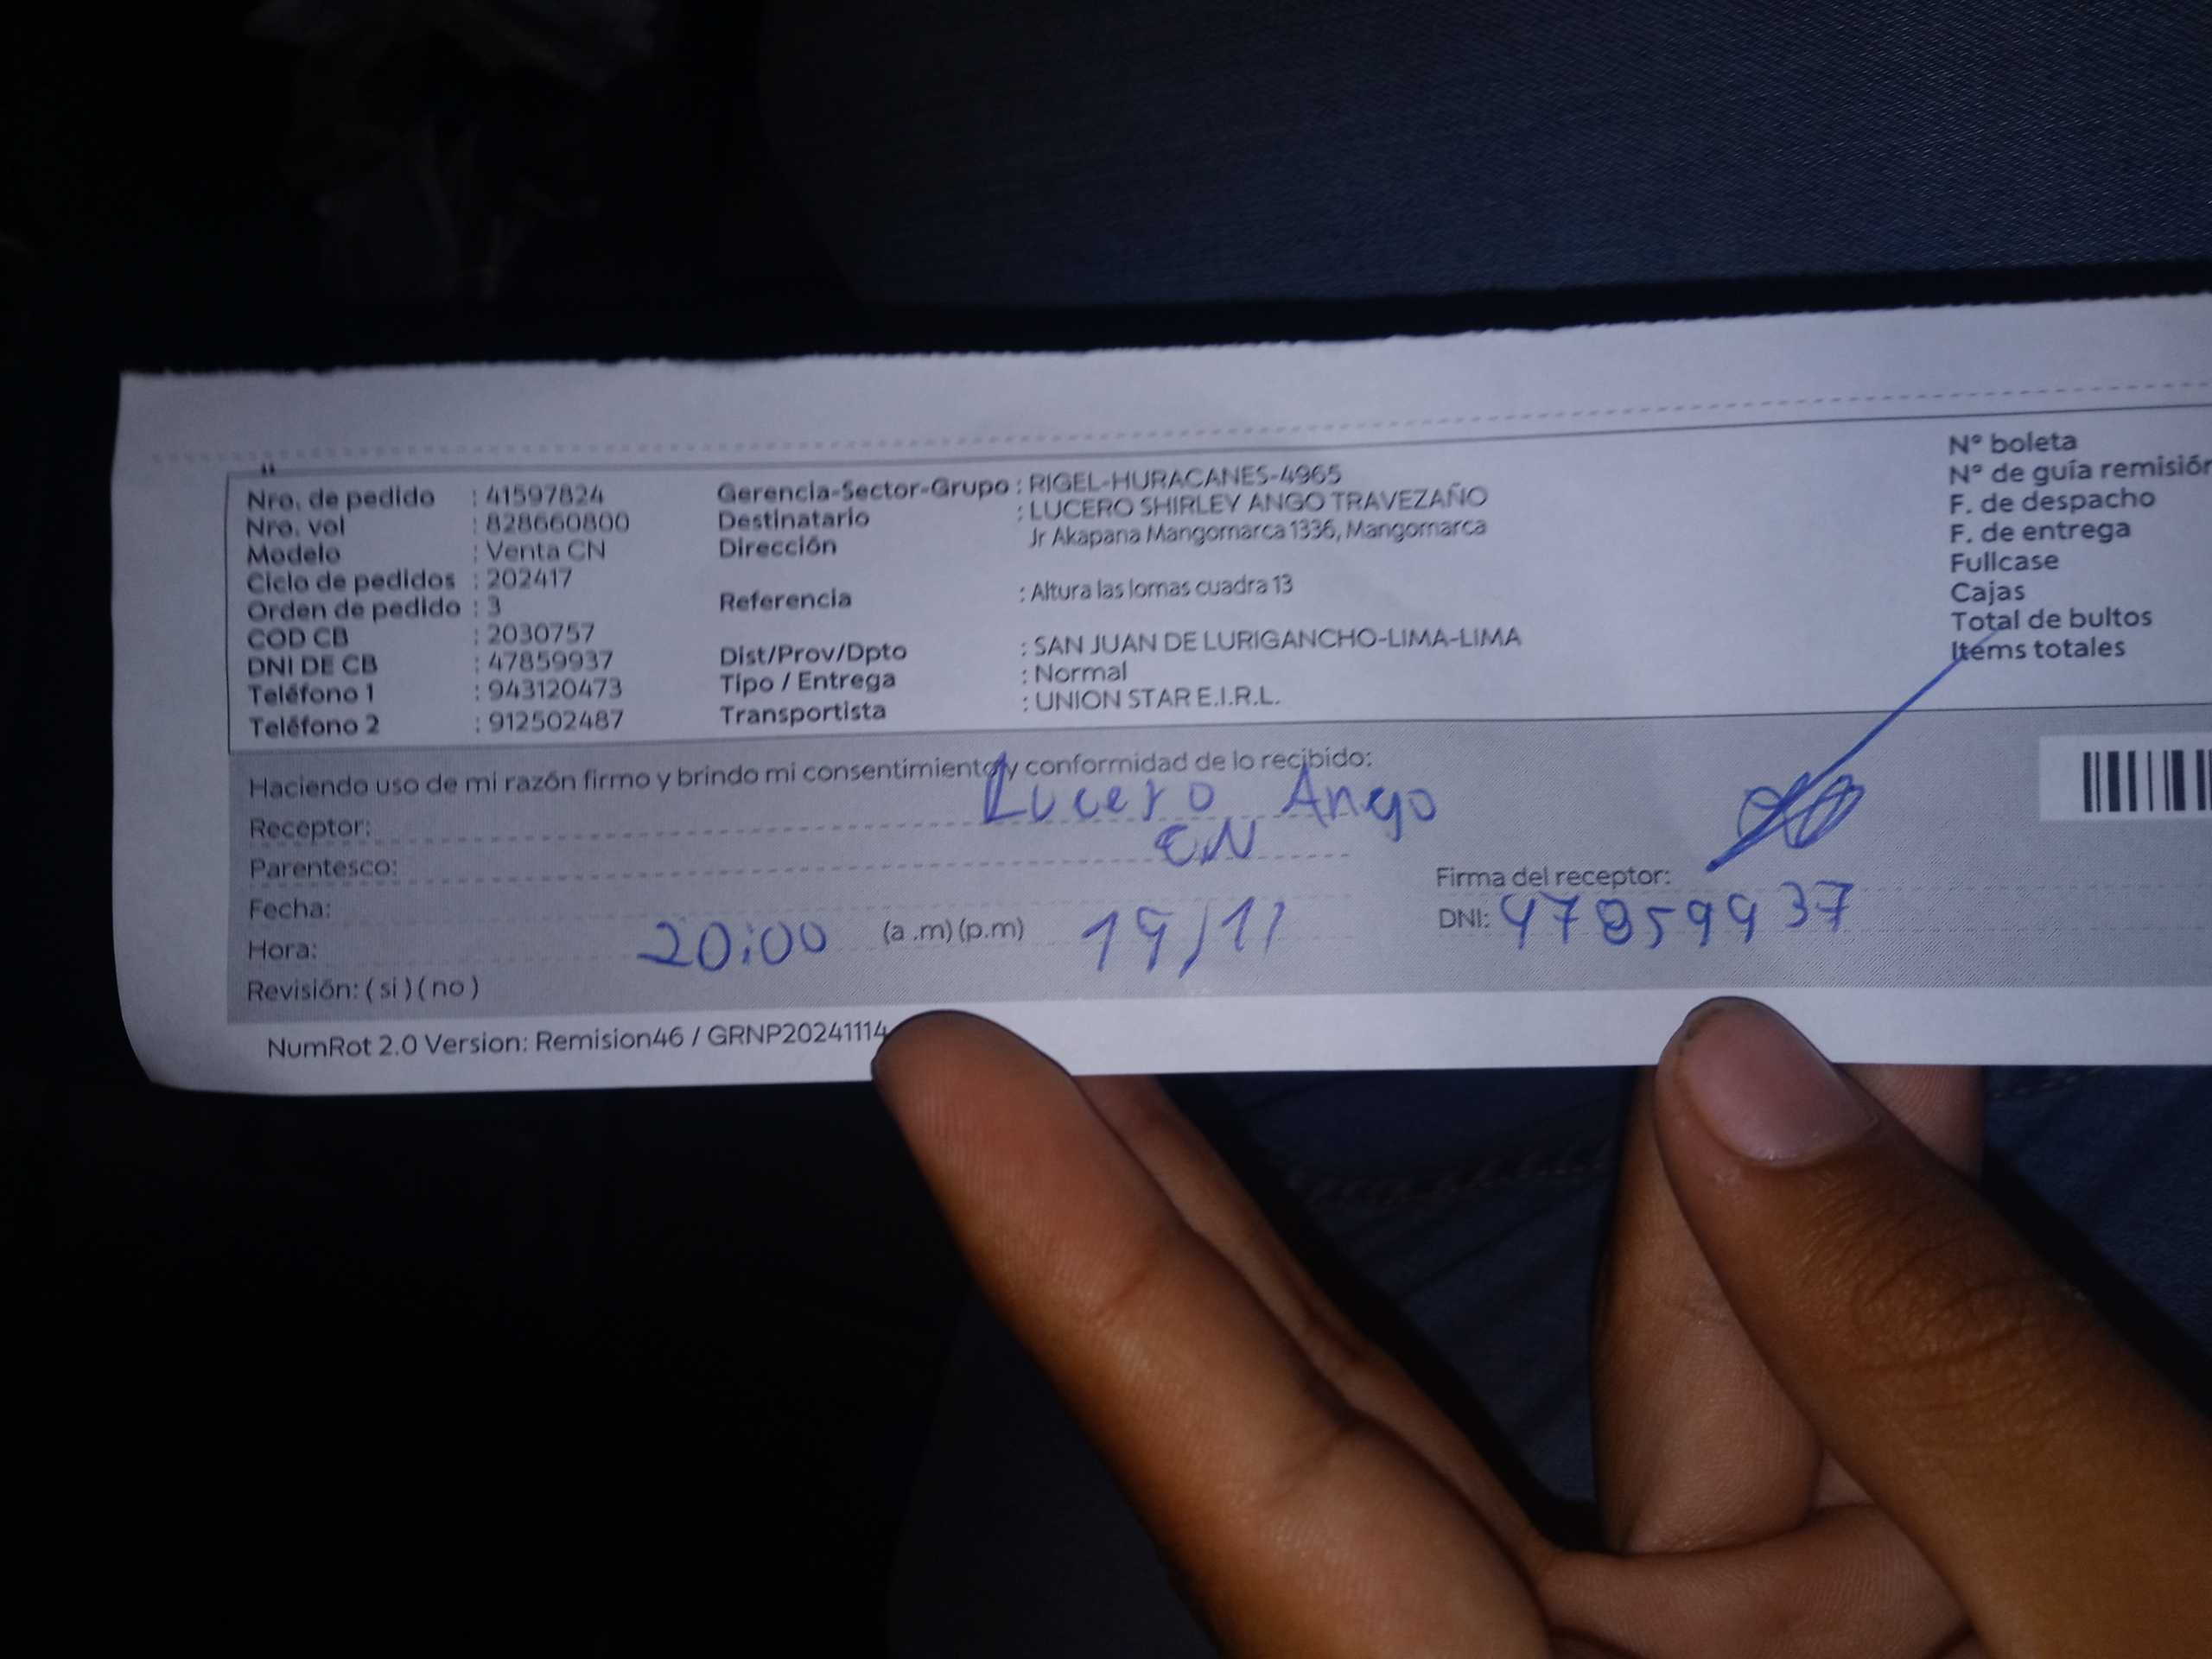 Nro. de pedido : 41597824
Nro. vol : 828660800
Modelo : Venta CN
Ciclo de pedidos : 202417
Orden de pedido : 3
COD CB : 2030757
DNI DE CB : 47859937
Teléfono 1 : 943120473
Teléfono 2 : 912502487
Gerencia-Sector-Grupo : RIGEL-HURACANES-4965
Destinatario : LUCERO SHIRLEY ANGO TRAVEZAÑO
Dirección Jr Akapana Mangomarca 1336, Mangomarca
Referencia : Altura las lomas cuadra 13
Dist/Prov/Dpto : SAN JUAN DE LURIGANCHO-LIMA-LIMA
Tipo / Entrega : Normal
Transportista : UNION STAR E.I.R.L.
N° boleta
N° de guía remisión
F. de despacho
F. de entrega
Fullcase
Cajas
Total de bultos
Items totales
Haciendo uso de mi razón firmo y brindo mi consentimiento y conformidad de lo recibido:
Receptor: Lucero Ango
Parentesco: CN
Fecha:
Hora: 20:00 (a .m) (p.m) 19/11
Revisión: ( si ) ( no )
Firma del receptor:
DNI: 47859937
NumRot 2.0 Version: Remision46 / GRNP20241114